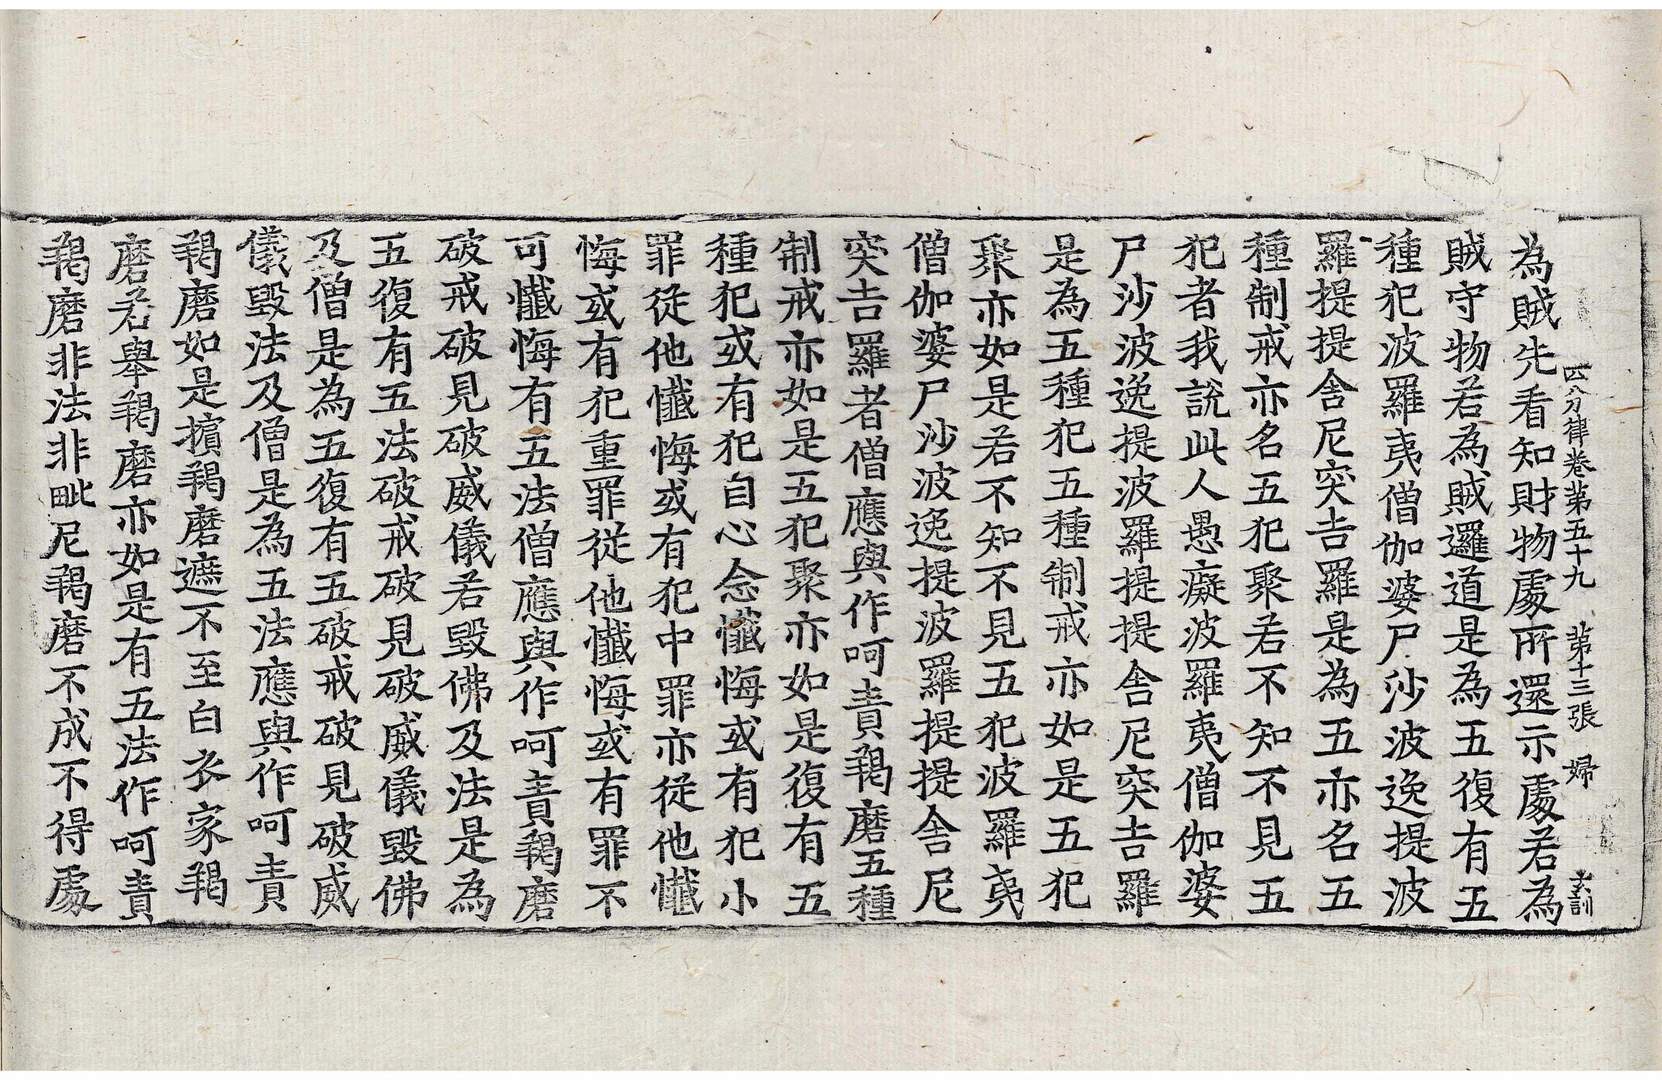 四分律卷第五十九 第十三張 婦
為賊先看知財物處所還示處若為
賊守物若為賊邏道是為五復有五
種犯波羅夷僧伽婆尸沙波逸提波
羅提提舍尼突吉羅是為五亦名五
種制戒亦名五犯聚若不知不見五
犯者我說此人愚癡波羅夷僧伽婆
尸沙波逸提波羅提提舍尼突吉羅
是為五種犯五種制戒亦如是五犯
聚亦如是若不知不見五犯波羅夷
僧伽婆尸沙波逸提波羅提提舍尼
突吉羅者僧應與作呵責羯磨五種
制戒亦如是五犯聚亦如是復有五
種犯或有犯自心念懺悔或有犯小
罪從他懺悔或有犯中罪亦從他懺
悔或有犯重罪從他懺悔或有罪不
可懺悔有五法僧應與作呵責羯磨
破戒破見破威儀若毀佛及法是為
五復有五法破戒破見破威儀毀佛
及僧是為五復有五破戒破見破威
儀毀法及僧是為五法應與作呵責
羯磨如是擯羯磨遮不至白衣家羯
磨若舉羯磨亦如是有五法作呵責
羯磨非法非毗尼羯磨不成不得處